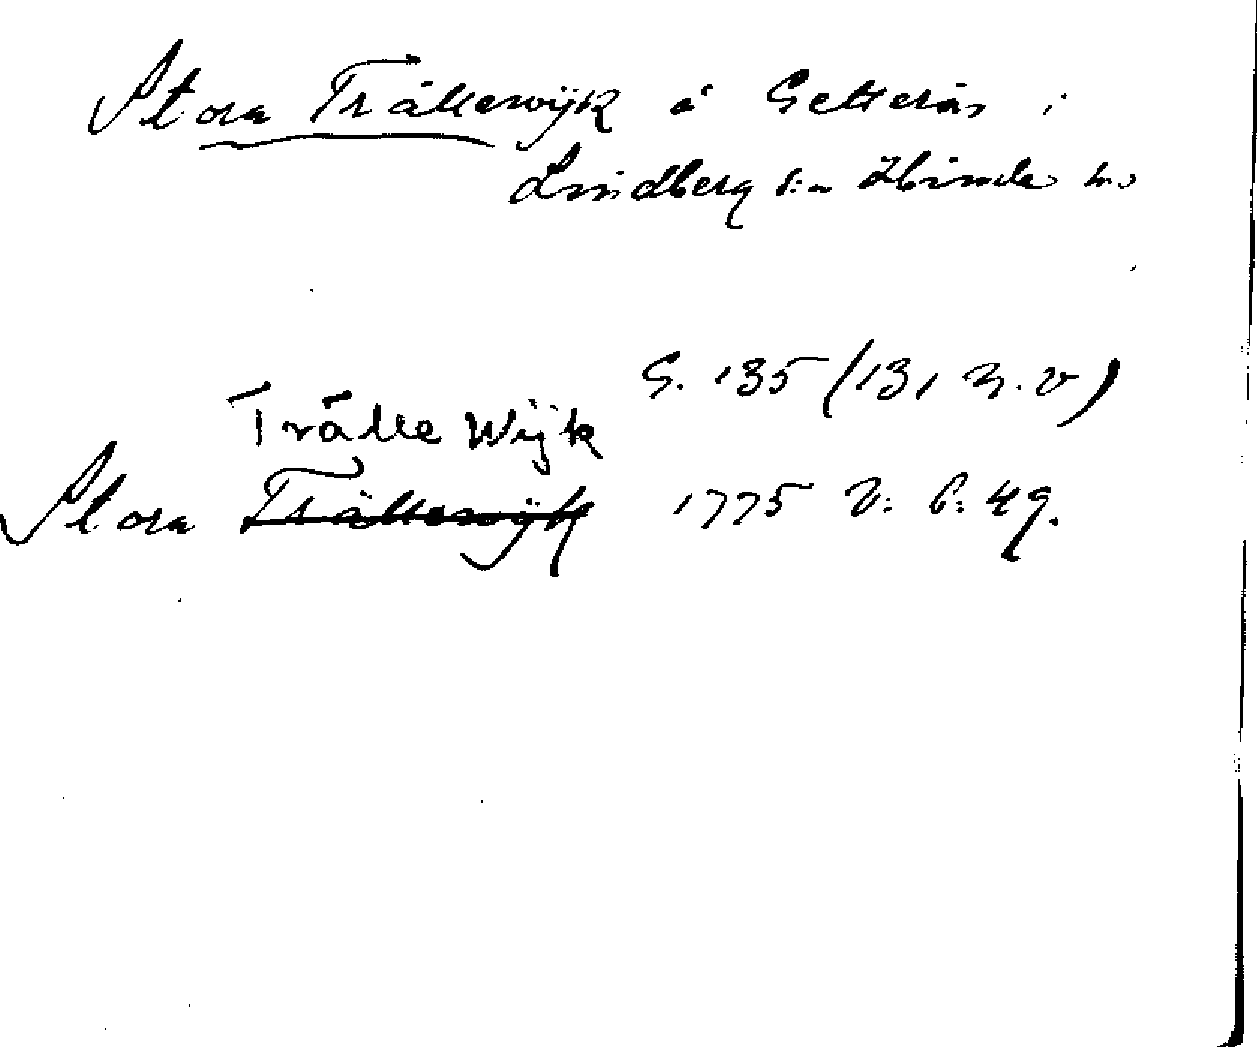 Stora Trällewÿk å Getterön i
Lindberg s:n Himle h.
G. 135 (131 n. v)
Trälle Wÿk
Stora Trällewÿk 1775 V: 6: 49.